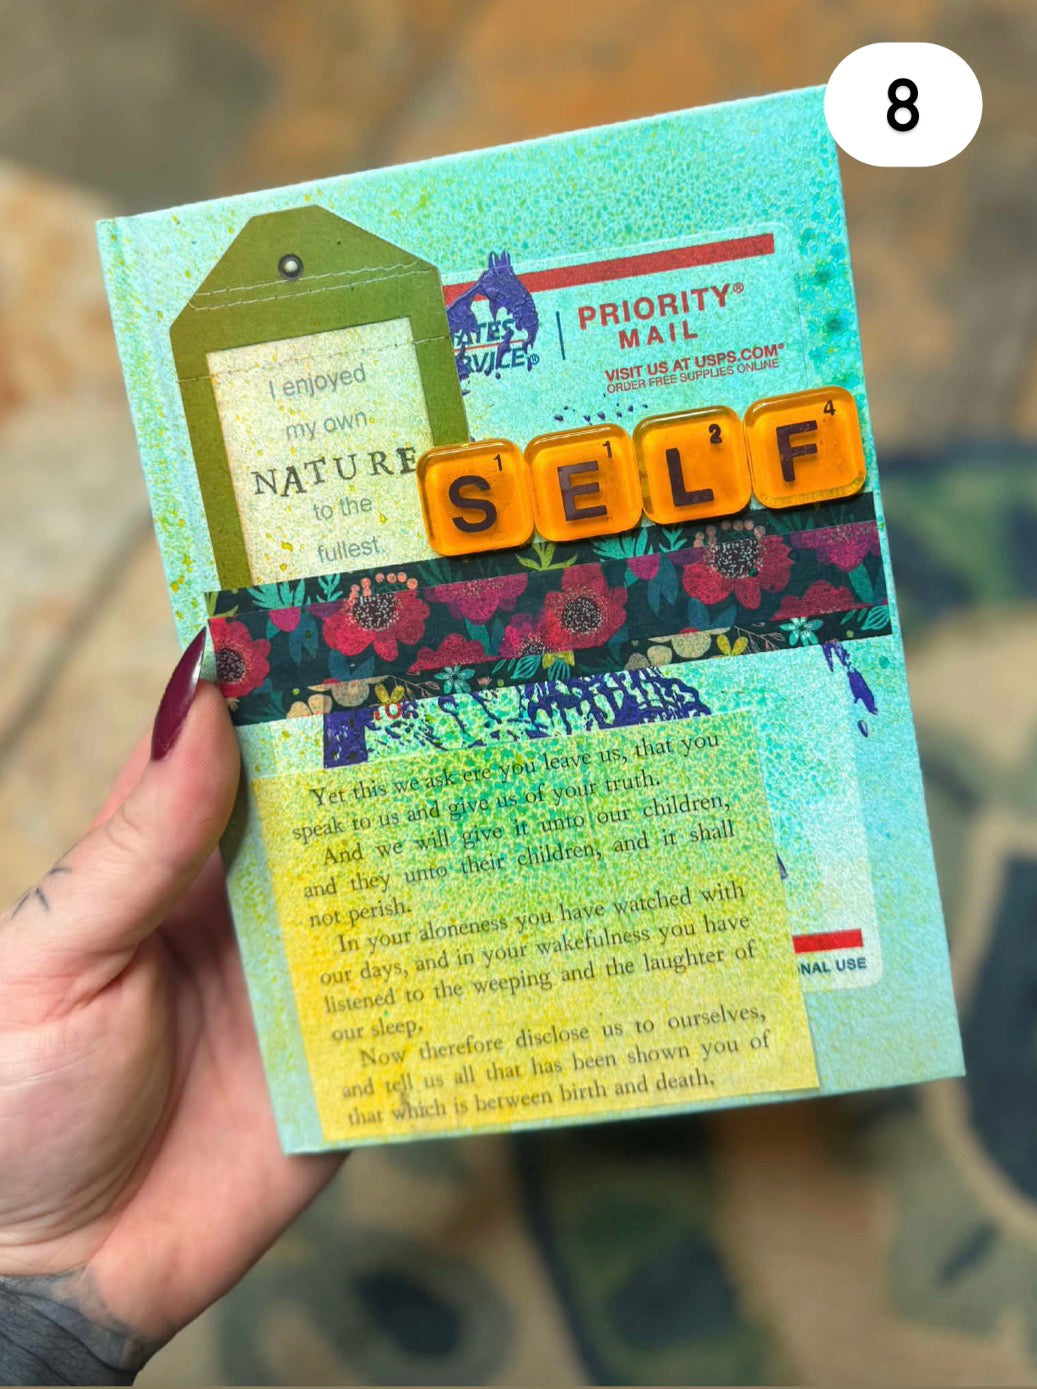 8
PRIORITY®
MAIL
ATES
RVICE®
VISIT US AT USPS.COM®
ORDER FREE SUPPLIES ONLINE
I enjoyed
my own
NATURE
to the
fullest.
S1 E1 L2 F4
Yet this we ask ere you leave us, that you
speak to us and give us of your truth.
And we will give it unto our children,
and they unto their children, and it shall
not perish.
In your aloneness you have watched with
our days, and in your wakefulness you have
listened to the weeping and the laughter of
our sleep.
Now therefore disclose us to ourselves,
and tell us all that has been shown you of
that which is between birth and death.
NAL USE